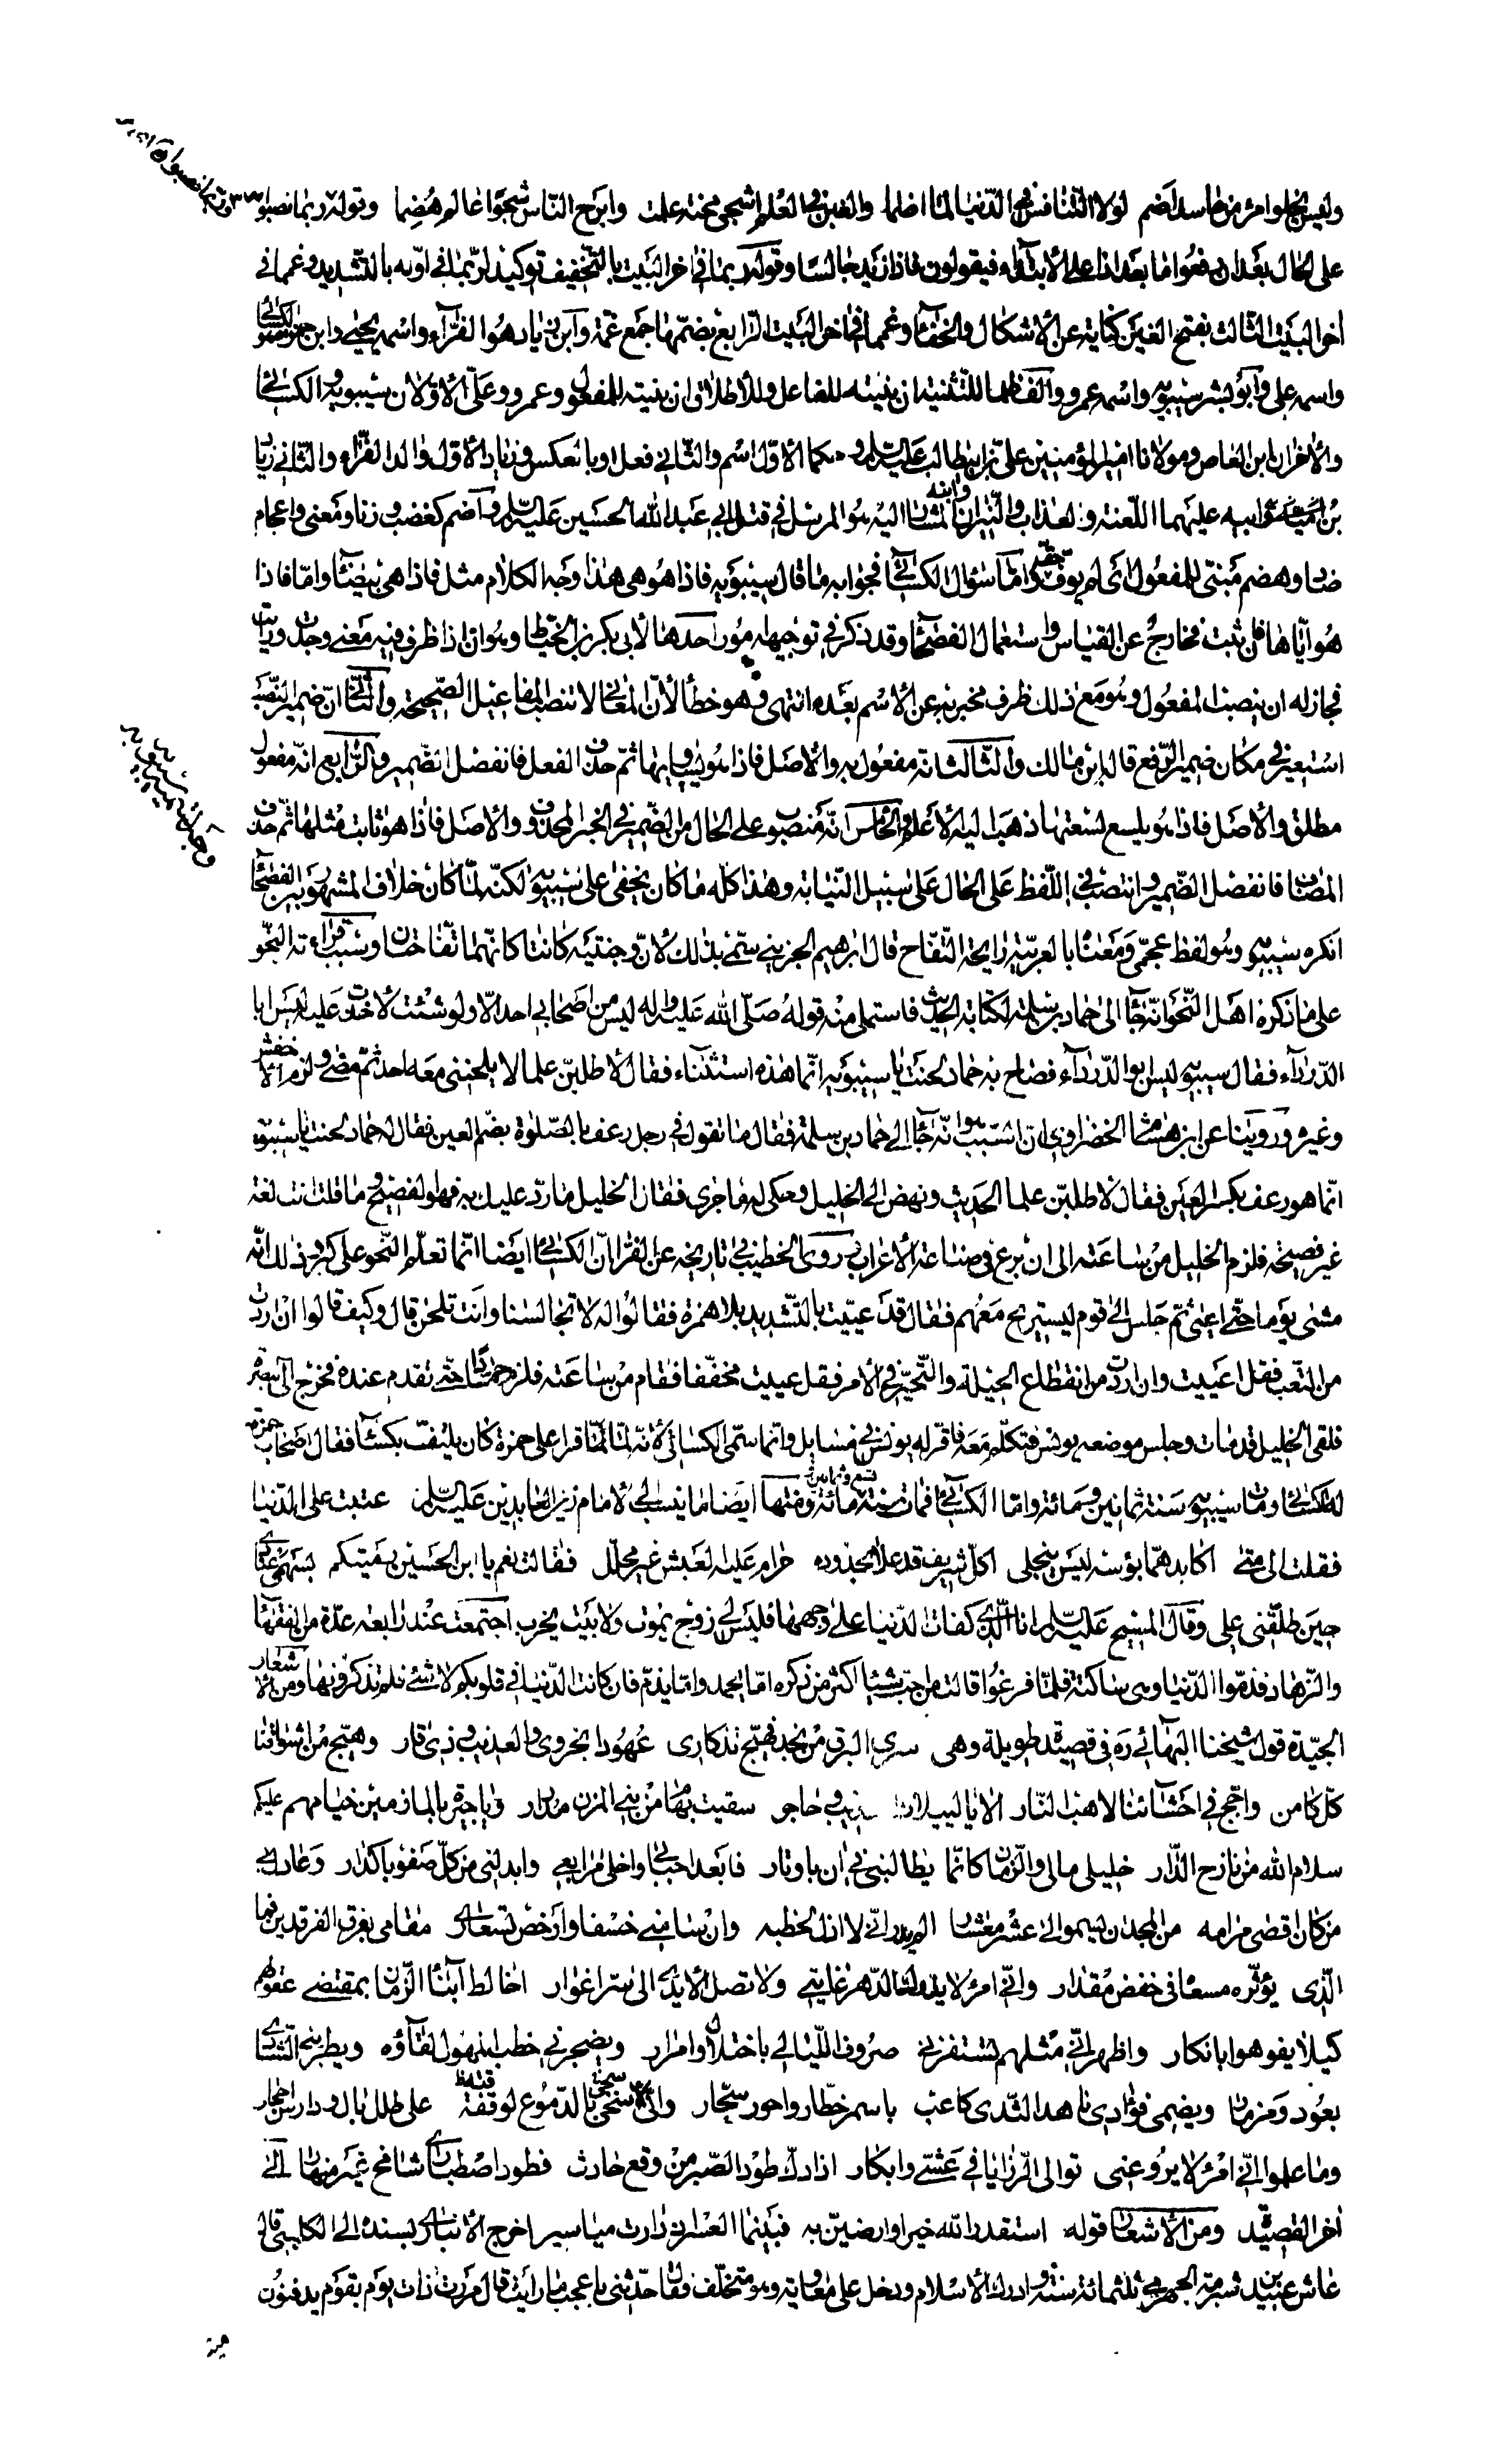 وليس يخلو امرؤ من حاسد أضم لولا التنافس في الدنيا لما اضما والغبن في العلم اشجى محنة علمت وابرح الناس شجوا عالم هضما وقوله ربما نصبوا
على الحال بعد ان رفعوا ما بعد اذا على الابتداء فيقولون فاذا زيد جالسا وقوله ربما في اخر البيت بالتخفيف توكيد لربما في اوله بالتشديد وغما في
اخر البيت الثالث بفتح الغين كناية عن الاشكال والخفاء وغما في اخر البيت الرابع بضمها جمع غمة وابن زياد هو الفراء واسمه يحيى وابن حمزة هو الكسائي
واسمه علي وابو بشر سيبويه واسمه عمرو والف ظلما للتثنية ان بنيته للفاعل وللاطلاق ان بنيته للمفعول وعمرو وعلي الاولان سيبويه والكسائي
والاخران ابن العاص ومولانا امير المؤمنين علي بن ابيطالب عليه السلم و حكما الاول اسم والثاني فعل او بالعكس وزياد الاول والد الفراء والثاني زياد
بن ابيه عليهما اللعنة والعذاب والنيران وابنه المشار اليه هو المرسل في قتل ابي عبد الله الحسين عليه السلم واضم كغضب وزنا ومعنى واعجام
ضاد وهضم مبني للمفعول اي لم يوف حقه واما سؤال الكسائي فجوابه ما قال سيبويه فاذا هو هي هذا وجه الكلام مثل فاذا هي بيضاء واما فاذا
هو اياها فان ثبت فخارج عن القياس واستعمال الفصحاء وقد ذكر في توجيهه امور احدها لابي بكر بن الخياط وهو ان اذا ظرف فيه معنى وجدت ورايت
فجاز له ان ينصب المفعول وهو مع ذلك ظرف مخبر به عن الاسم بعده انتهى وهو خطأ لان المعاني لا تنصب المفاعيل الصحيحة والثاني ان ضمير النصب
استعير في مكان ضمير الرفع قاله ابن مالك والثالث انه مفعول به والاصل فاذا هو يساويها ثم حذف الفعل فانفصل الضمير والرابع انه مفعول
مطلق والاصل فاذا هو يلسع لسعتها ذهب اليه الاعلم والخامس انه منصوب على الحال من الضمير في الخبر المحذوف والاصل فاذا هو ثابت مثلها ثم حذف
المضاف فانفصل الضمير وانتصب في اللفظ على الحال على سبيل النيابة وهذا كله ما كان يخفى على سيبويه لكنه لما كان خلاف المشهور بين الفصحاء
انكره سيبويه وهو لفظ عجمي ومعناه بالعربية رايحة التفاح قال ابرهيم الحربي سمي بذلك لان وجنتيه كانتا كانهما تفاحتان وسبب قراءته النحو
على ما ذكره اهل النحو انه جاء الى حماد بن سلمة لكتابة الحديث فاستملى منه قوله صلى الله عليه واله ليس من اصحابي احد الا ولو شئت لاخذت عليه ليس ابا
الدرداء فقال سيبويه ليس ابو الدرداء فصاح به حماد لحنت يا سيبويه انما هذه استثناء فقال لاطلبن علما لا يلحنني معه احد ثم مضى ولزم الاخفش
وغيره وروينا عن ابن هشام الخضراوي ان السبب هو انه جاء الى حماد بن سلمة فقال ما تقول في رجل رعف بالصلوة بضم العين فقال له حماد لحنت يا سيبويه
انما هو رعف بكسر العين فقال لاطلبن علما الحديث ونهض الى الخليل وحكى له ما جرى فقال الخليل ما رد عليك به فهو الفصيح وما قلت انت لغة
غير فصيحة فلزم الخليل من ساعته الى ان برع في صناعة الاعراب روى الخطيب في تاريخه عن الفراء ان الكسائي ايضا انما تعلم النحو على كبر وذلك انه
مشى يوما حتى اعيى ثم جلس الى قوم ليستريح معهم فقال قد عييت بالتشديد بلا همزة فقالوا له لا تجالسنا وانت تلحن قال وكيف قالوا ان اردت
من التعب فقل اعييت وان اردت من انقطاع الحيلة والتحير في الامر فقل عييت مخففا فقام من ساعته فلزم حتى تقدم عنده فخرج الى البصرة
فلقي الخليل قد مات وجلس موضعه يونس فتكلم معه فاقر له يونس في مسايل وانما سمي الكسائي لانه لما قرا على حمزة كان يلتف بكساء فقال اصحاب حمزة
له الكسائي ومات سيبويه سنة ثمانين ومائة واما الكسائي فمات سنة تسع وثمانين ومائة ومنها ايضا ما ينسب الى الامام زين العابدين عليه السلم عتبت على الدنيا
فقلت الى متى اكابد هما بؤسه ليس ينجلي اكل شريف قد علا بجدوده حرام عليه العيش غير محلل فقالت نعم يا ابن الحسين رميتكم بسهمي عنادا
حين طلقني علي وقال المسيح عليه السلم انا الذي كفات الدنيا على وجهها فليس لي زوج يموت ولا بيت يخرب اجتمعت عند رابعة عدة من الفقهاء
والزهاد فذموا الدنيا وهي ساكتة فلما فرغوا قالت من احب شيئا اكثر من ذكره اما بحمد واما بذم فان كانت الدنيا في قلوبكم لا شئ فلم تذكرونها ومن الاشعار
الجيدة قول شيخنا البهائي ره في قصيدة طويلة وهي سرى البرق من نجد فهيج تذكاري عهودا بحزوى والعذيب وذي قار وهيج من اشواقنا
كل كامن واجج في احشائنا لاهب النار الا يا لييلات وحاجر سقيت بهام من بني المزن مدرار ويا جيرة بالمازمين خيامهم عليكم
سلام الله من نازح الدار خليلي مالي والزمان كانما يطالبني في كل ان باوتار فابعد احبابي واخلى مرابعي وابدلني من كل صفو باكدار وعادل بي
من كان اقصى مرامه من المجد ان يسمو الى عشر معشاري الم يدر اني لا اذل لخطبه وان سامني خسفا وارخص تسعاري مقامي بفرق الفرقدين فما
الذي يؤثره مسعاه في خفض مقداري واني امرؤ لا يدرك الدهر غايتي ولا تصل الايدي الى سر اغواري اخالط ابناء الزمان بمقتضى عقولهم
كيلا يفوهوا بانكار واظهر اني مثلهم تستفزني صروف الليالي باختلاء وامرار ويضجرني الخطب المهول لقاؤه ويطربني الشادي
بعود ومزمار ويصمي فؤادي ناهد الثدي كاعب باسمر خطار واحور سحار واني لاسخى بالدموع لوقفة على طلل بال ودارس احجار
وما علموا اني امرؤ لا يروعني توالي الرزايا في عشي وابكار اذا دك طود الصبر من وقع حادث فطود اصطباري شامخ غير منهار الى
اخر القصيدة ومن الاشعار قوله استقدر الله خيرا وارضين به فبينما العسر اذ دارت مياسير اخرج الانباري بسنده الى الكلبي قال
عاش عبيد بن شرية الجرهمي ثلثمائة سنة وادرك الاسلام ودخل على معاوية وهو متخلف فقال حدثني باعجب ما رايت قال مررت ذات يوم بقوم يدفنون